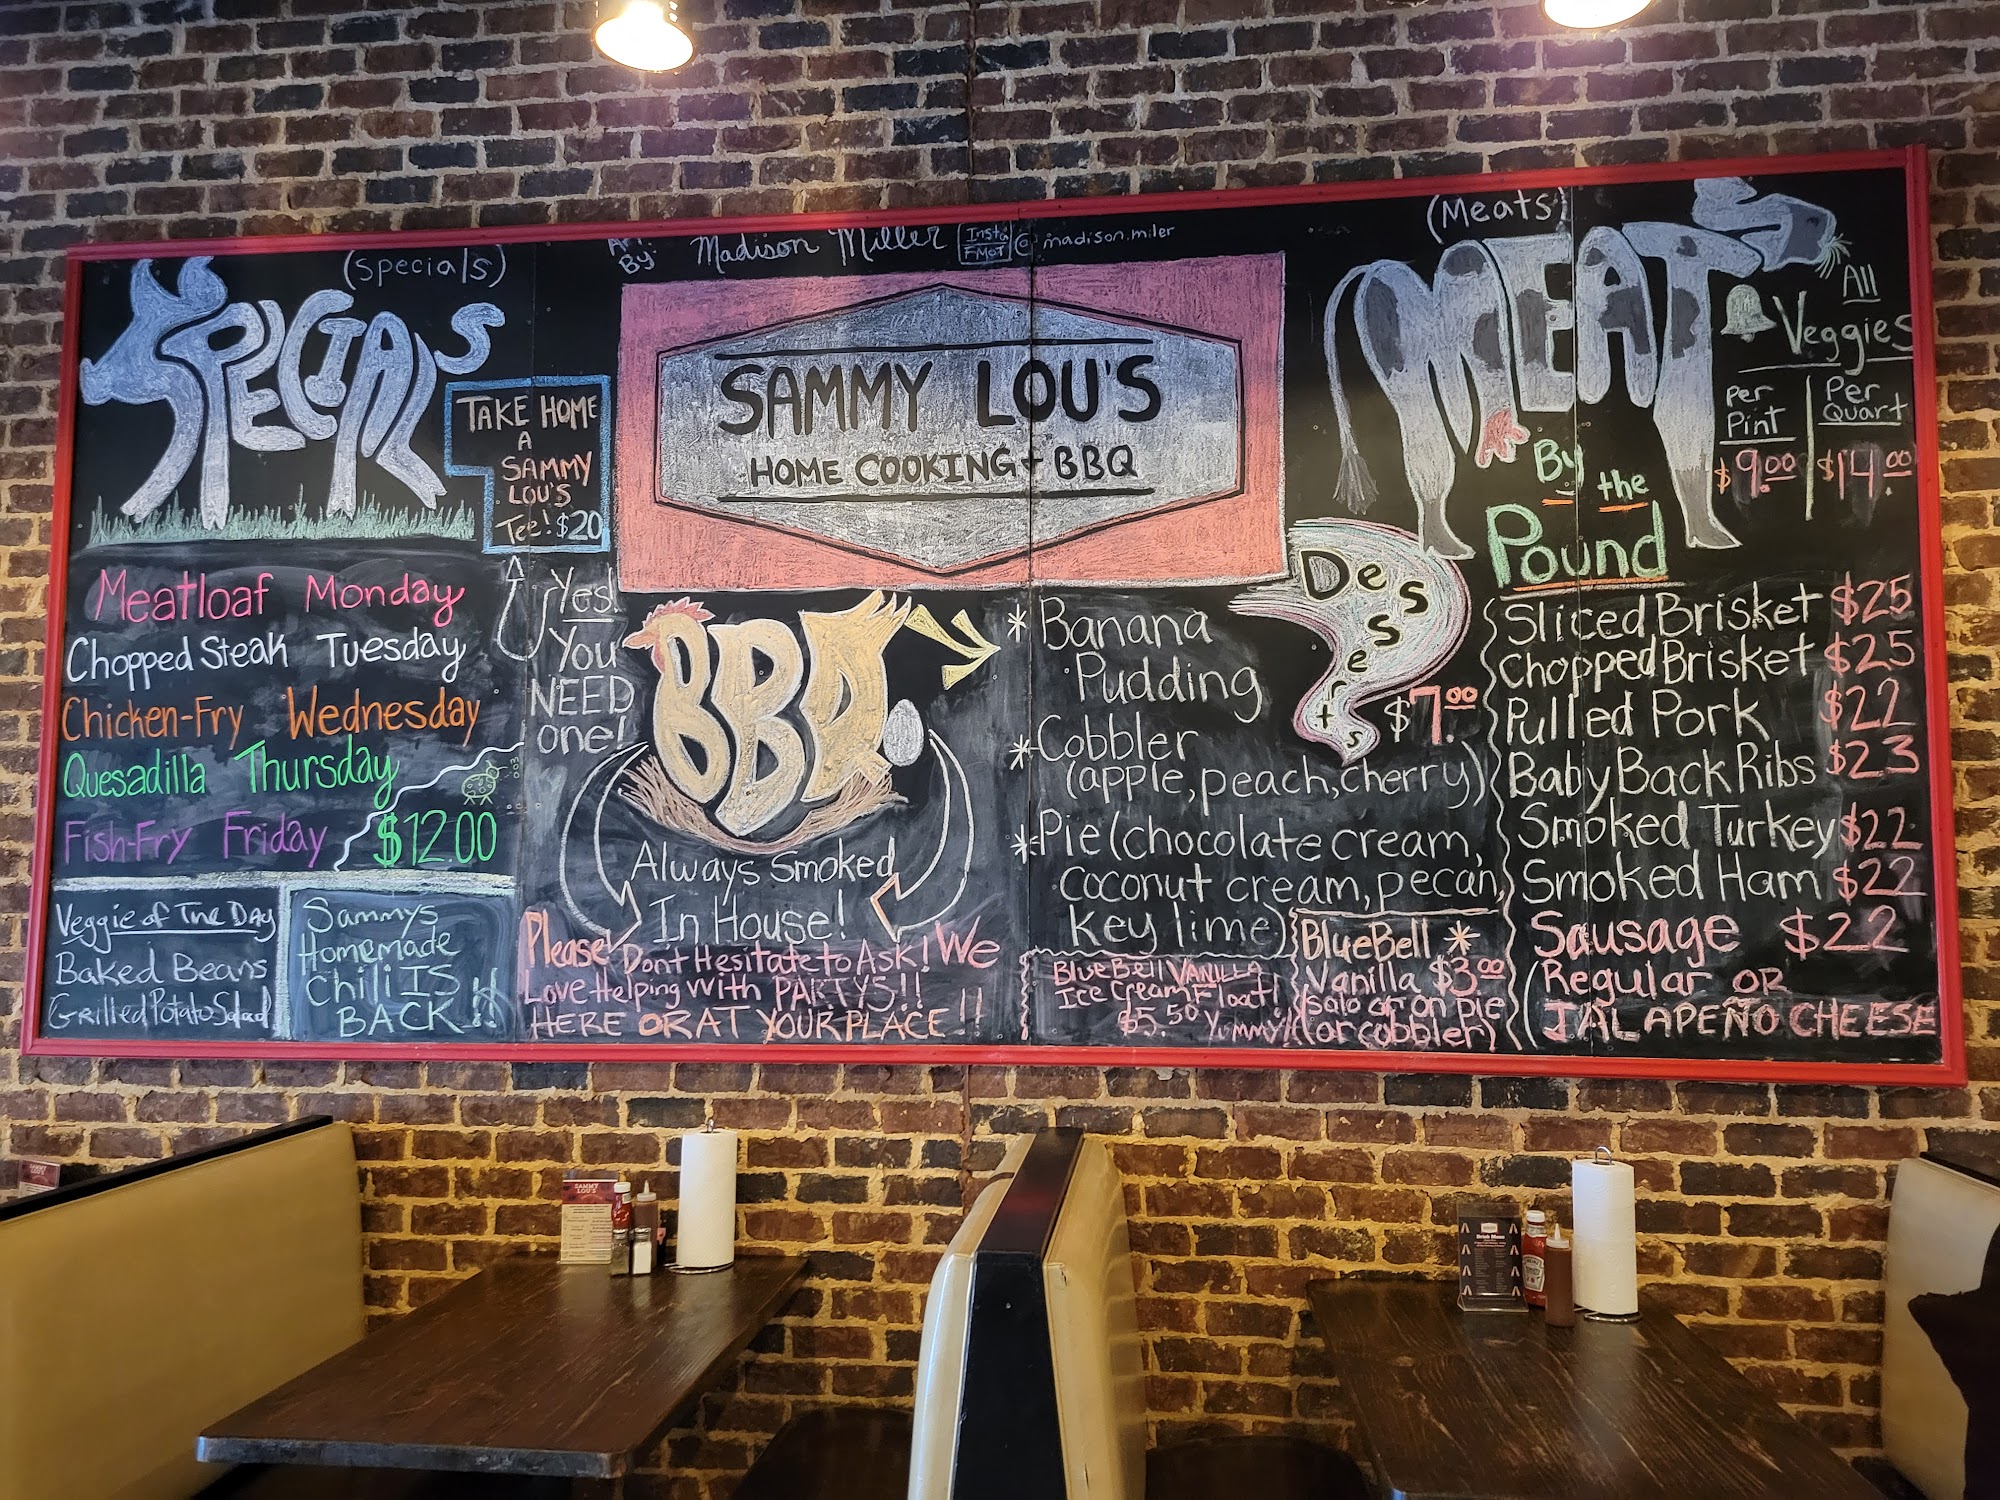 (Specials)
SPECIALS
Meatloaf Monday
Chopped Steak Tuesday
Chicken-Fry Wednesday
Quesadilla Thursday
Fish-Fry Friday $12.00
Veggie of The DAy
Baked Beans
Grilled Potato Salad
Sammys
Homemade
Chili IS
BACK!!
TAKE HOME
A
SAMMY
LOU'S
Tee! $20
Yes!
You
NEED
one!
Art
By: Madison Miller Insta @madison.miler
SAMMY LOU'S
HOME COOKING + BBQ
BBQ
Always Smoked
In House!
Please Dont Hesitate to Ask! We
Love Helping with PARTYS!!
HERE OR AT YOUR PLACE!!
Desserts
$7.00
* Banana
Pudding
* Cobbler
(apple, peach, cherry)
* Pie (chocolate cream,
coconut cream, pecan,
key lime)
Blue Bell VANILLA
Ice Cream Float!
$5.50 Yummy!
BlueBell *
Vanilla $3.00
(solo or on pie
or cobbler)
(Meats)
MEAT
By
the
Pound
Sliced Brisket $25
Chopped Brisket $25
Pulled Pork $22
Baby Back Ribs $23
Smoked Turkey $22
Smoked Ham $22
Sausage $22
(Regular OR
JALAPEÑO CHEESE
All
Veggies
Per
Pint
$9.00
Per
Quart
$14.00
SAMMY
LOU'S
Drink Menu